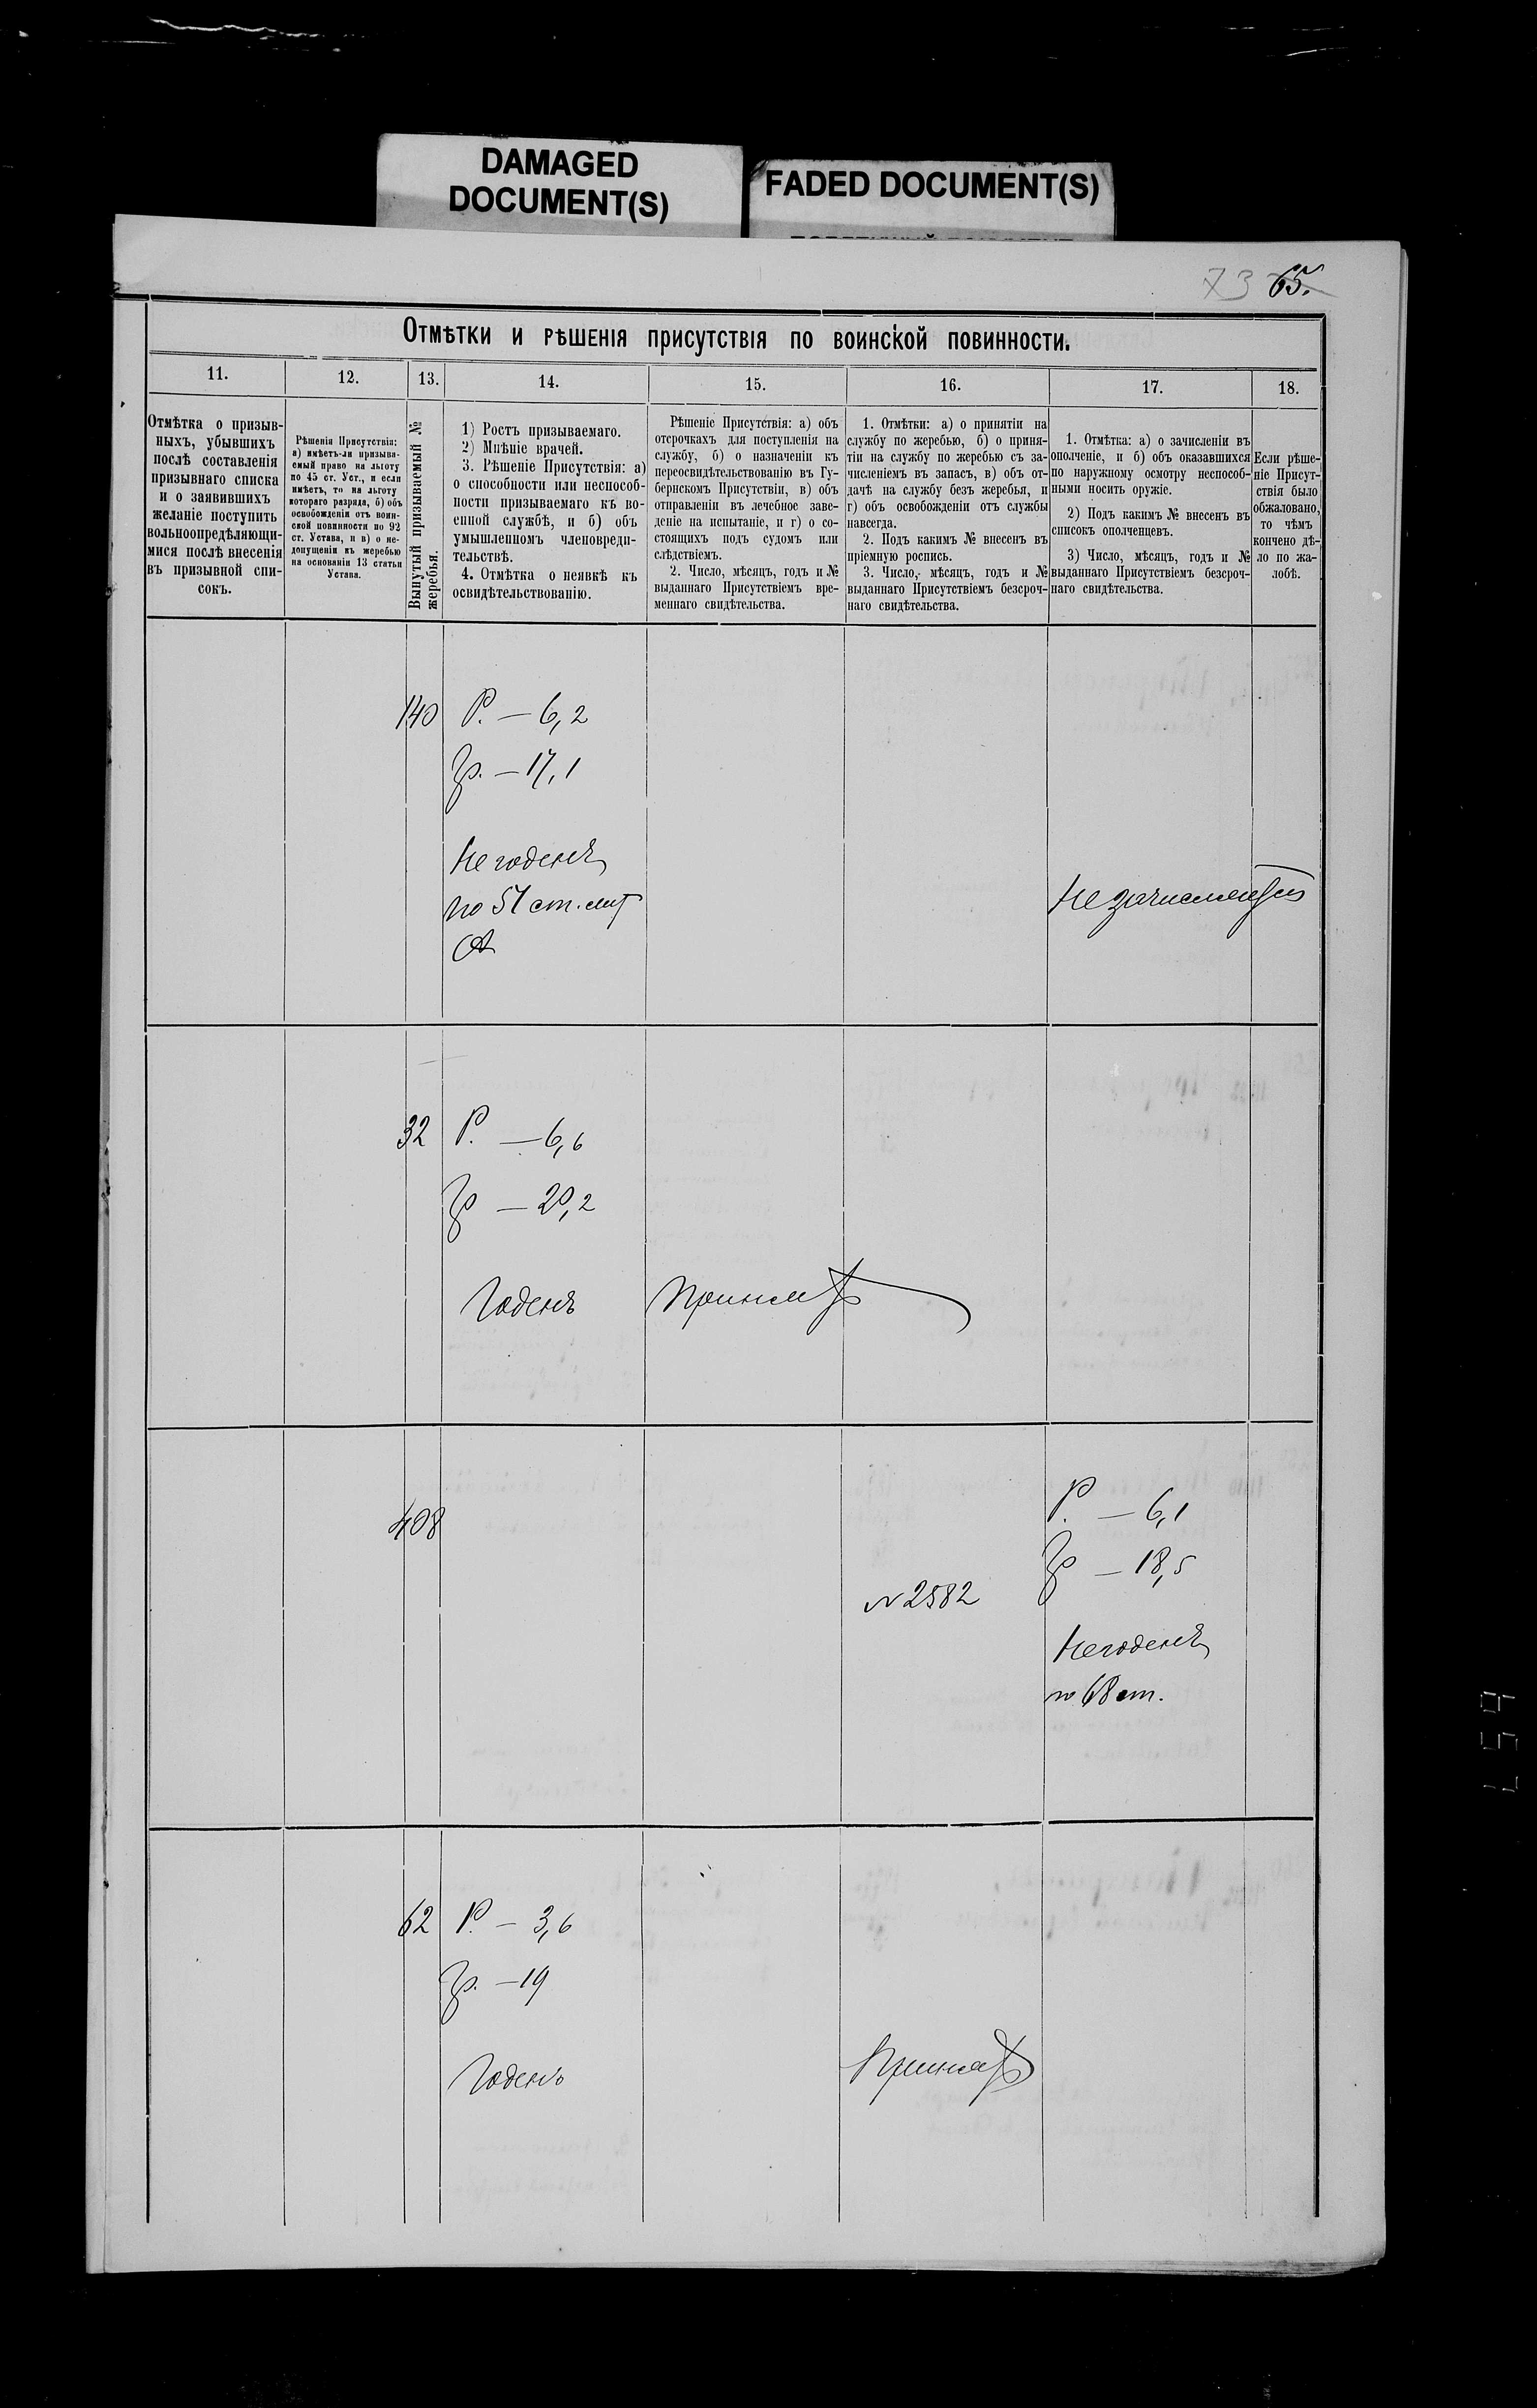 DAMAGED
DOCUMENT(S)
FADED DOCUMENT(S)
73 65.
Отмѣтки и рѣшенія присутствія по воинской повинности.
11. 12. 13. 14. 15. 16. 17. 18.
Отмѣтка о призыв-
ныхъ, убывшихъ
послѣ составленія
призывнаго списка
и о заявившихъ
желаніе поступить
вольноопредѣляющи-
мися послѣ внесенія
въ призывной спи-
сокъ.
Рѣшенія Присутствія:
а) имѣетъ-ли призыва-
емый право на льготу
по 45 ст. Уст., и если
имѣетъ, то на льготу
котораго разряда, б) объ
освобожденіи отъ воин-
ской повинности по 92
ст. Устава, и в) о не-
допущеніи къ жеребью
на основаніи 13 статьи
Устава.
Вынутый призываемый №
жеребья.
1) Ростъ призываемаго.
2) Мнѣніе врачей.
3. Рѣшеніе Присутствія: а)
о способности или неспособ-
ности призываемаго къ во-
енной службѣ, и б) объ
умышленномъ членовреди-
тельствѣ.
4. Отмѣтка о неявкѣ къ
освидѣтельствованію.
Рѣшеніе Присутствія: а) объ
отсрочкахъ для поступленія на
службу, б) о назначеніи къ
переосвидѣтельствованію въ Гу-
бернскомъ Присутствіи, в) объ
отправленіи въ лечебное заве-
деніе на испытаніе, и г) о со-
стоящихъ подъ судомъ или
слѣдствіемъ.
2. Число, мѣсяцъ, годъ и №
выданнаго Присутствіемъ вре-
меннаго свидѣтельства.
1. Отмѣтки: а) о принятіи на
службу по жеребью, б) о приня-
тіи на службу по жеребью съ за-
численіемъ въ запасъ, в) объ от-
дачѣ на службу безъ жеребья, и
г) объ освобожденіи отъ службы
навсегда.
2. Подъ какимъ № внесенъ въ
пріемную роспись.
3. Число, мѣсяцъ, годъ и №
выданнаго Присутствіемъ безсроч-
наго свидѣтельства.
1. Отмѣтка: а) о зачисленіи въ
ополченіе, и б) объ оказавшихся
по наружному осмотру неспособ-
ными носить оружіе.
2) Подъ какимъ № внесенъ въ
списокъ ополченцевъ.
3) Число, мѣсяцъ, годъ и №
выданнаго Присутствіемъ безсроч-
наго свидѣтельства.
Если рѣше-
ніе Присут-
ствія было
обжаловано,
то чѣмъ
кончено дѣ-
ло по жа-
лобѣ.
140 Р. — 6,2
Гр. — 17,1
Не годенъ
по 51 ст. лит
А
Не зачисляется
32 Р. — 6,6
Гр — 20,2
Годенъ Принятъ
408
Р. — 6,1
Гр — 18,5
№ 2582
Не годенъ
по 68 ст.
62 Р. — 3,6
Гр. — 19
Годенъ Принятъ